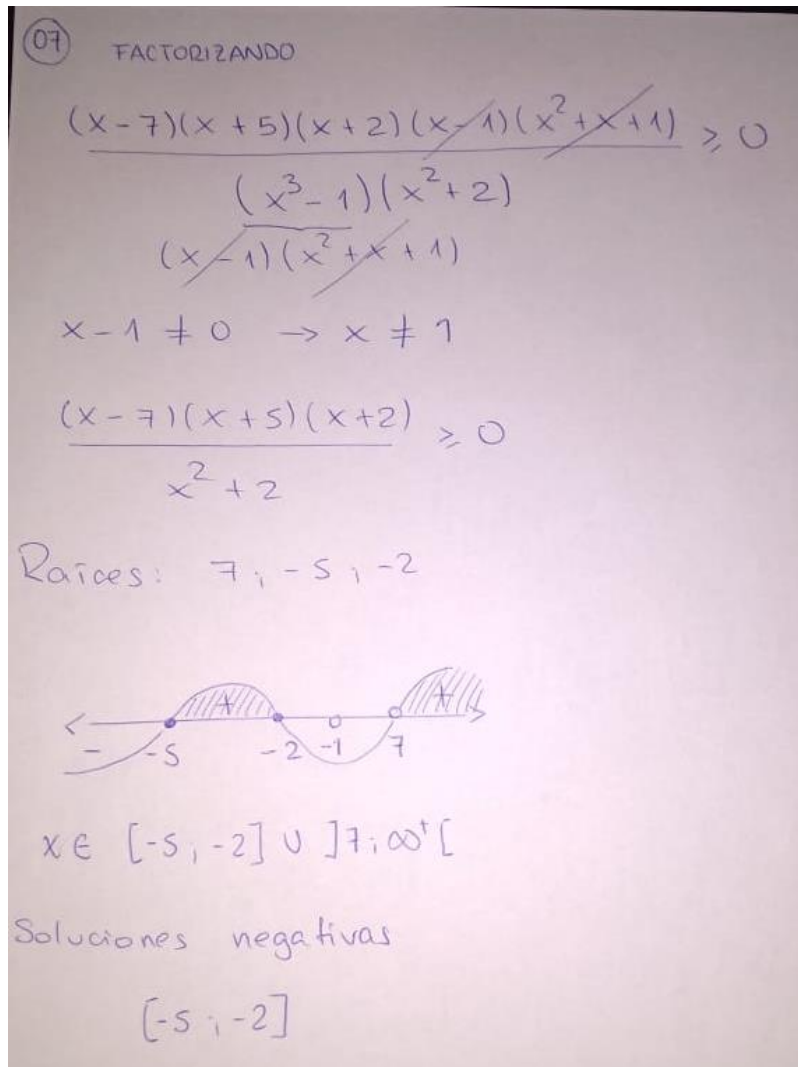 07 FACTORIZANDO
(x-7)(x+5)(x+2)(x-1)(x²+x+1) ≥ 0
(x³-1)(x²+2)
(x-1)(x²+x+1)
x-1 ≠ 0 → x ≠ 1
(x-7)(x+5)(x+2) ≥ 0
x²+2
Raíces: 7; -5; -2
+ +
- -5 -2 -1 7
x ∈ [-5; -2] ∪ ]7; ∞⁺[
Soluciones negativas
[-5; -2]